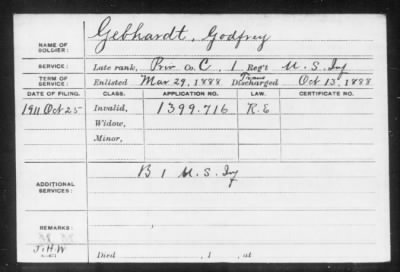 NAME OF SOLDIER: Gebhardt, Godfrey
SERVICE: Late rank, Priv Co. C, 1 Reg't U. S. Inf
TERM OF SERVICE: Enlisted Mar 29, 1888 Trans Discharged Oct 13, 1888
DATE OF FILING. CLASS. APPLICATION NO. LAW. CERTIFICATE NO.
1911 Oct 25 Invalid, 1399.716 R.E
Widow,
Minor,
ADDITIONAL SERVICES: B 1 U. S. Inf
REMARKS:
J.H.W
Died , 1 , at